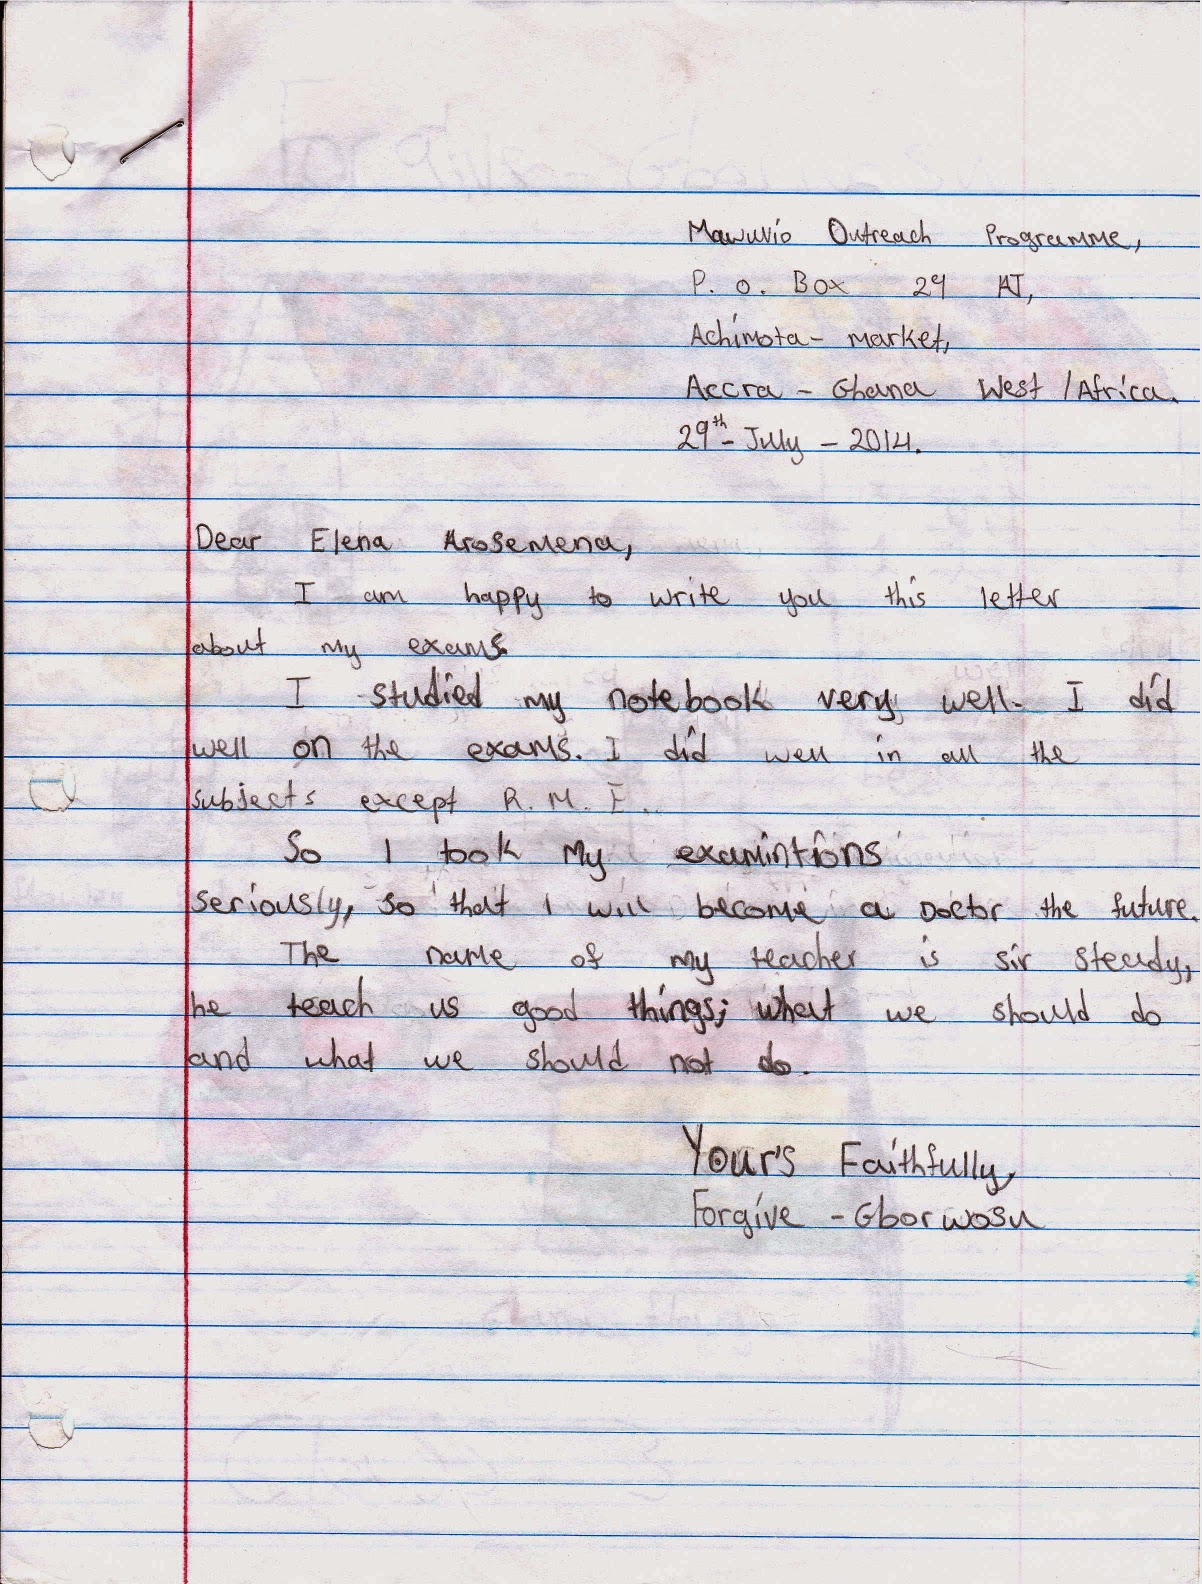 Mawuvio Outreach Programme,
P. O. Box 29 AJ,
Achimota - market,
Accra - Ghana West /Africa.
29th - July - 2014.
Dear Elena Arosemena,
I am happy to write you this letter
about my exams.
I studied my notebook very well. I did
well on the exams. I did well in all the
subjects except R. M. E.
So I took My examintions
seriously, so that I will become a Doctor the future.
The name of my teacher is sir steady,
he teach us good things; what we should do
and what we should not do.
Your's Faithfully,
Forgive - Gborwosu